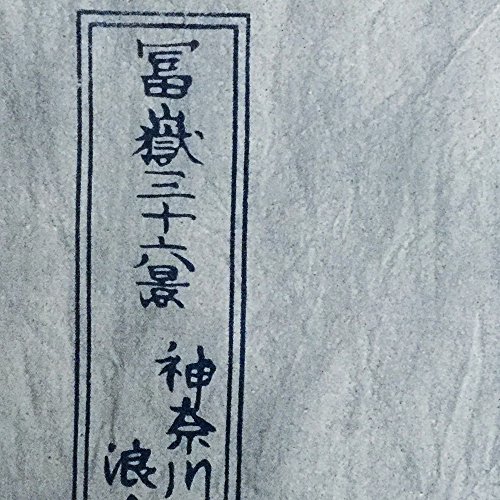 冨嶽三十六景
神奈川
浪